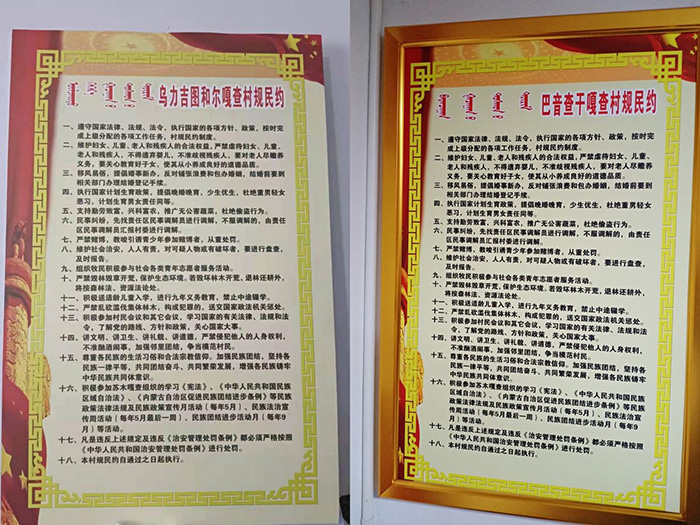 乌力吉图和尔嘎查村规民约
一、遵守国家法律、法规、法令,执行国家的各项方针、政策,按时完
成上级分配的各项工作任务,村规民约的制度。
二、维护妇女、儿童、老人和残疾人的合法权益,严禁虐待妇女、儿童、
老人和残疾人,不得遗弃婴儿,不准歧视残疾人,要对老人尽赡养
义务,要关心教育好子女,使其从小养成良好的道德品质。
三、移风易俗,提倡婚事新办,反对铺张浪费和包办婚姻,结婚前要到
相关部门办理结婚登记手续。
四、执行国家计划生育政策,提倡晚婚晚育,少生优生,杜绝重男轻女
恶习,计划生育男女责任同等。
五、支持勤劳致富,兴科富农,推广无公害蔬菜,杜绝偷盗行为。
六、民事纠纷,先找责任区民事调解员进行调解,不服调解的,由责任
区民事调解员汇报村委进行调解。
七、严禁赌博,教唆引诱青少年参加赌博者,从重处罚。
八、维护社会治安,人人有责,对可疑人物或有破坏者,要进行查查,
及时报告。
九、组织牧民积极参与社会各类青年志愿者服务活动。
十、严禁毁林毁草开荒,保护生态环境。若毁坏林木开荒,退林还耕外,
将按森林法、资源法论处。
十一、积极送适龄儿童入学,进行九年义务教育,禁止中途辍学。
十二、严禁乱砍滥伐集体林木,构成犯罪的,送交国家政法机关惩处。
十三、积极参加村民会议和其它会议,学习国家的有关法律、法规和法
令,了解党的路线、方针和政策,关心国家大事。
十四、讲文明、讲卫生、讲礼貌、讲道德,严禁侵犯他人的人身权利,
不准酗酒闹事,加强邻里团结,争当模范村民。
十五、尊重各民族的生活习俗和合法宗教信仰。加强民族团结,坚持各
民族一律平等,共同团结奋斗、共同繁荣发展,增强各民族铸牢
中华民族共同体意识。
十六、积极参加苏木嘎查组织的学习《宪法》、《中华人民共和国民族
区域自治法》、《内蒙古自治区促进民族团结进步条例》等民族
政策法律法规及民族政策宣传月活动(每年5月)、民族法治宣
传周活动(每年5月最后一周)、民族团结进步活动月(每年9
月)等活动。
十七、凡是违反上述规定及违反《治安管理处罚条例》都必须严格按照
《中华人民共和国治安管理处罚条例》处罚。
十八、本村规民约自通过之日起执行。
巴音查干嘎查村规民约
一、遵守国家法律、法规、法令,执行国家的各项方针、政策,按时完
成上级分配的各项工作任务,村规民约的制度。
二、维护妇女、儿童、老人和残疾人的合法权益,严禁虐待妇女、儿童、
老人和残疾人,不得遗弃婴儿,不准歧视残疾人,要对老人尽赡养
义务,要关心教育好子女,使其从小养成良好的道德品质。
三、移风易俗,提倡婚事新办,反对铺张浪费和包办婚姻,结婚前要到
相关部门办理结婚登记手续。
四、执行国家计划生育政策,提倡晚婚晚育,少生优生,杜绝重男轻女
恶习,计划生育男女责任同等。
五、支持勤劳致富,兴科富农,推广无公害蔬菜,杜绝偷盗行为。
六、民事纠纷,先找责任区民事调解员进行调解,不服调解的,由责任
区民事调解员汇报村委进行调解。
七、严禁赌博,教唆引诱青少年参加赌博者,从重处罚。
八、维护社会治安,人人有责,对可疑人物或有破坏者,要进行查查,
及时报告。
九、组织牧民积极参与社会各类青年志愿者服务活动。
十、严禁毁林毁草开荒,保护生态环境。若毁坏林木开荒,退林还耕外,
将按森林法、资源法论处。
十一、积极送适龄儿童入学,进行九年义务教育,禁止中途辍学。
十二、严禁乱砍滥伐集体林木,构成犯罪的,送交国家政法机关惩处。
十三、积极参加村民会议和其它会议,学习国家的有关法律、法规和法
令,了解党的路线、方针和政策,关心国家大事。
十四、讲文明、讲卫生、讲礼貌、讲道德,严禁侵犯他人的人身权利,
不准酗酒闹事,加强邻里团结,争当模范村民。
十五、尊重各民族的生活习俗和合法宗教信仰。加强民族团结,坚持各
民族一律平等,共同团结奋斗、共同繁荣发展,增强各民族铸牢
中华民族共同体意识。
十六、积极参加苏木嘎查组织的学习《宪法》、《中华人民共和国民族
区域自治法》、《内蒙古自治区促进民族团结进步条例》等民族
政策法律法规及民族政策宣传月活动(每年5月)、民族法治宣
传周活动(每年5月最后一周)、民族团结进步活动月(每年9
月)等活动。
十七、凡是违反上述规定及违反《治安管理处罚条例》都必须严格按照
《中华人民共和国治安管理处罚条例》处罚。
十八、本村规民约自通过之日起执行。